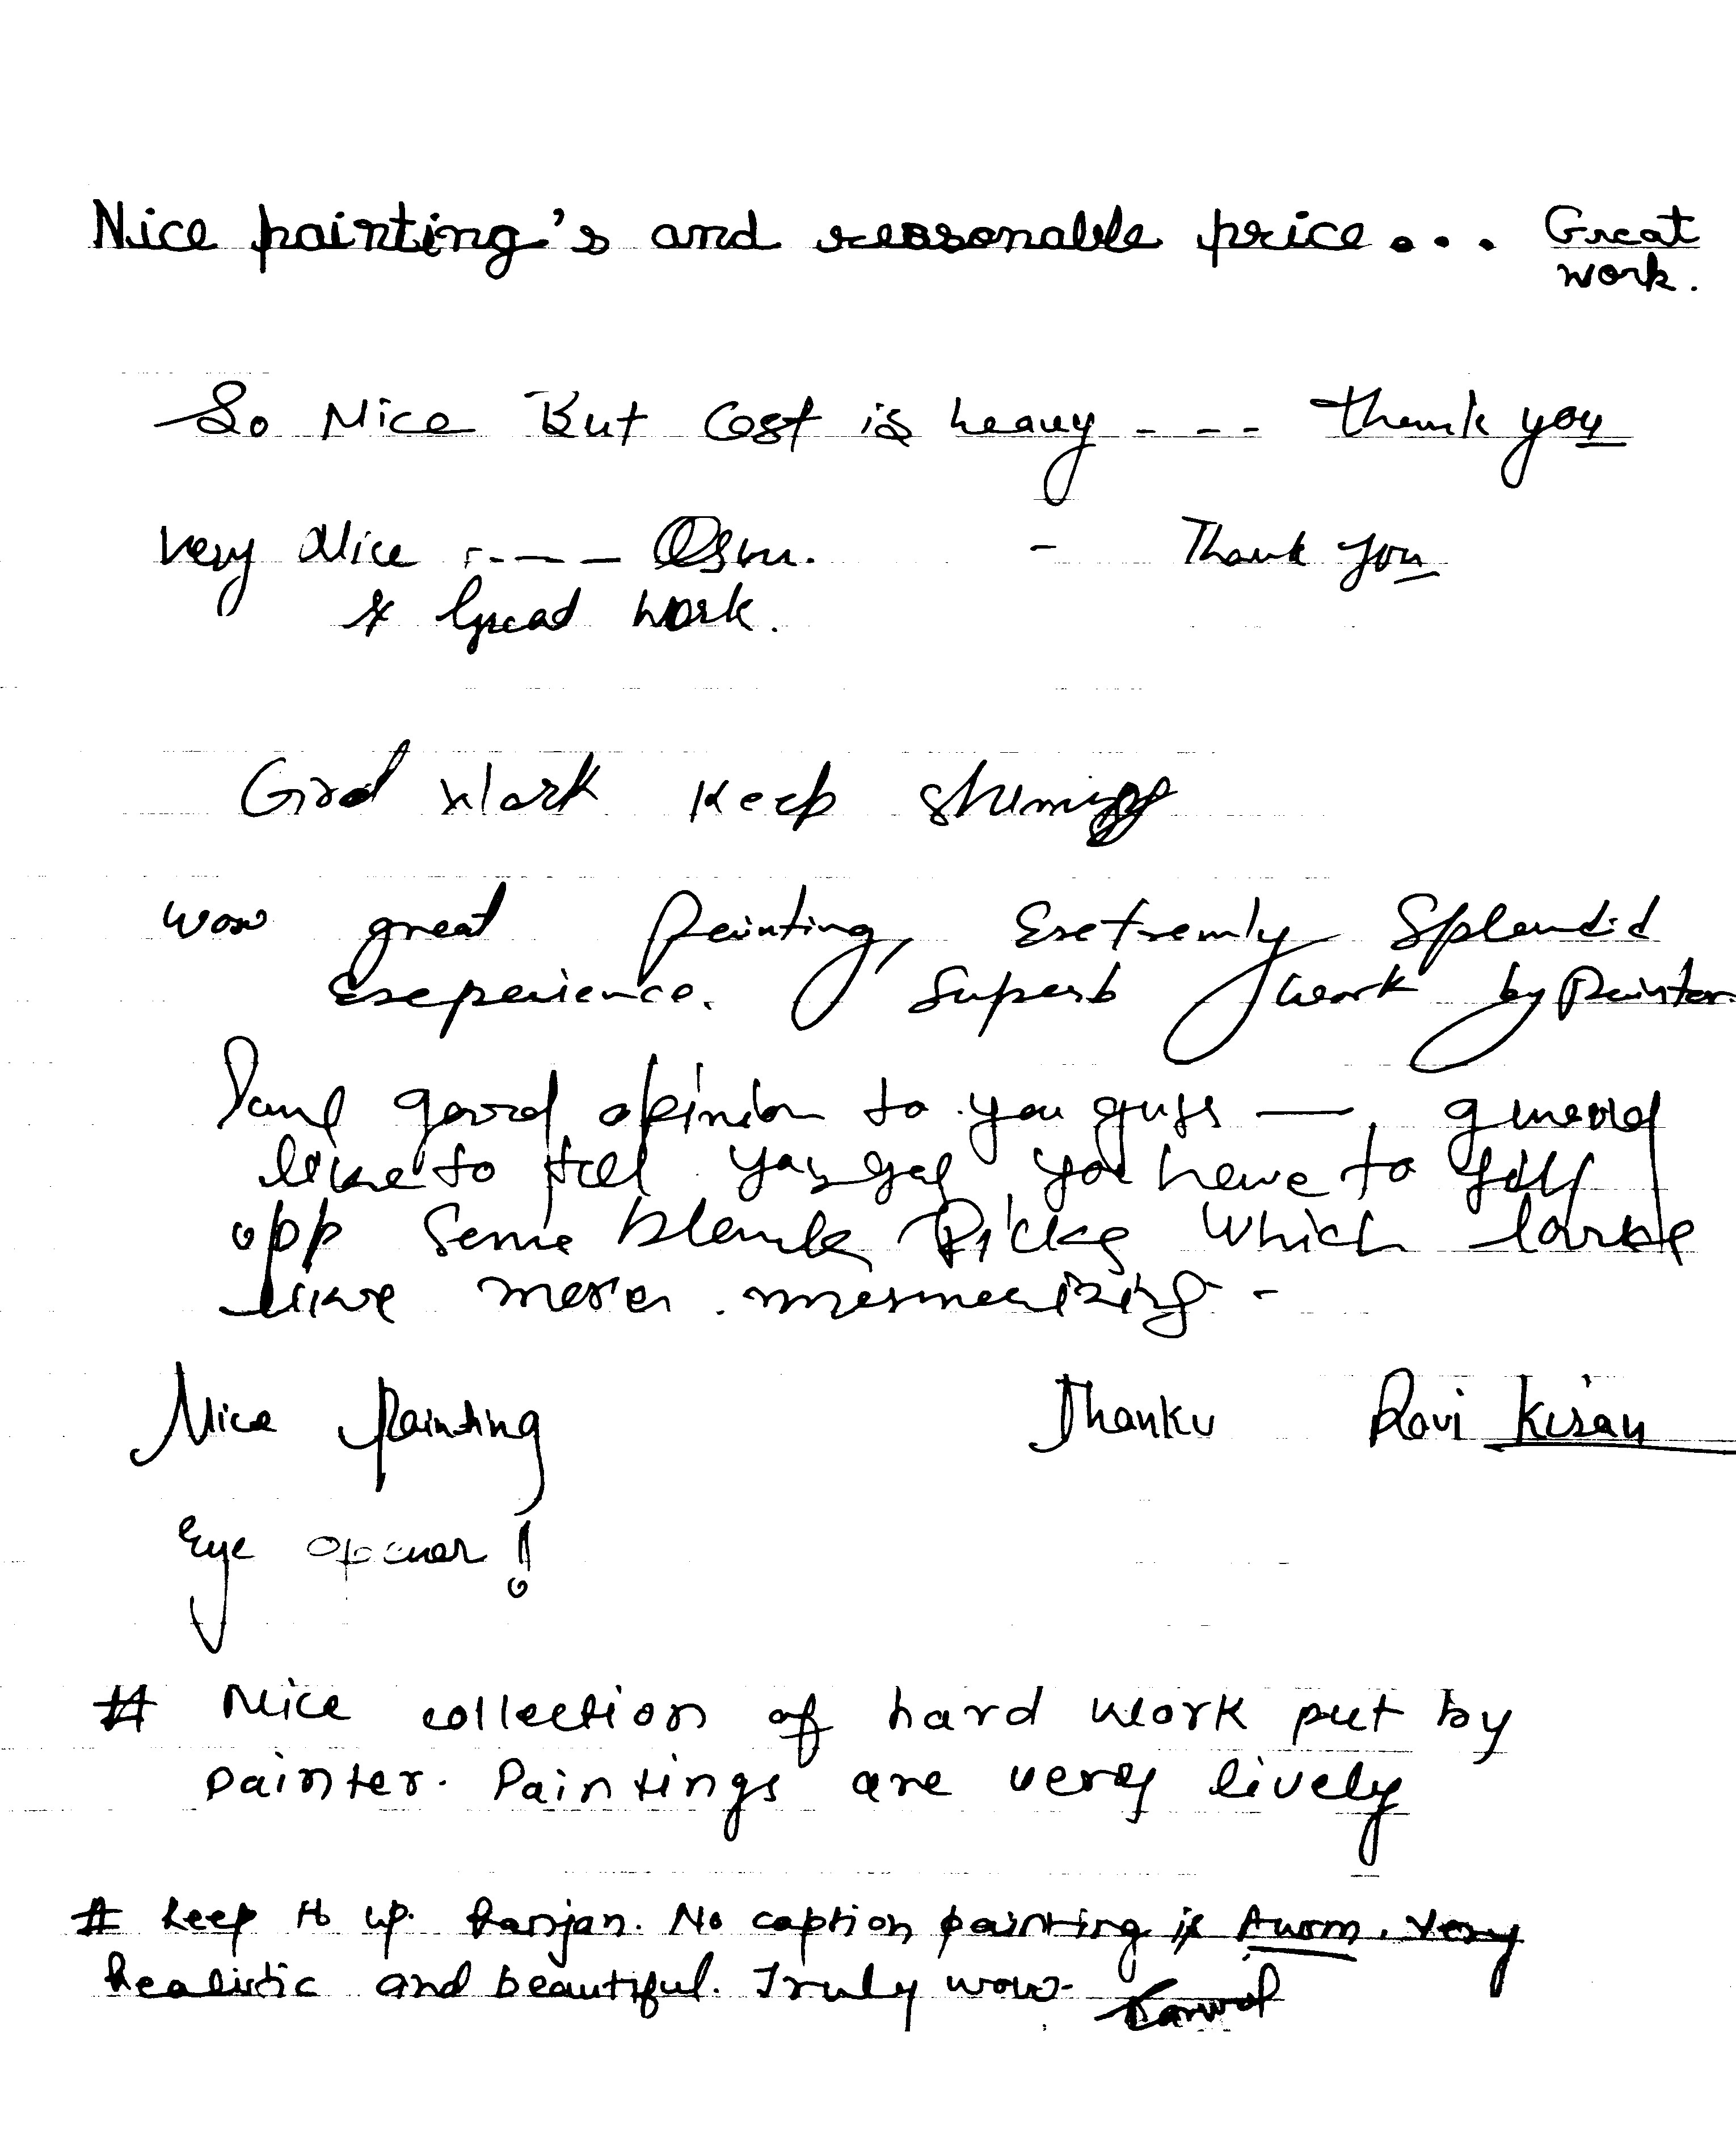 Nice painting's and reasonable price... Great
work.
So Nice But Cost is heavy ---- thank you
very Nice ---- - Thank you
& Great work.
Good Work Keep
wow great Painting, Exetremly Splendid
Exeperience. Superb work by Painter
good opinion to you guys —
like to tell you have to
opp some blank which
like more mesmerizing -
Nice painting Thanku Ravi Kisan
Eye opener!
# Nice collection of hard work put by
painter. Paintings are very lively
# Keep it up Ranjan. No caption painting is Awsm. Very
Realistic and beautiful. Truly wow.